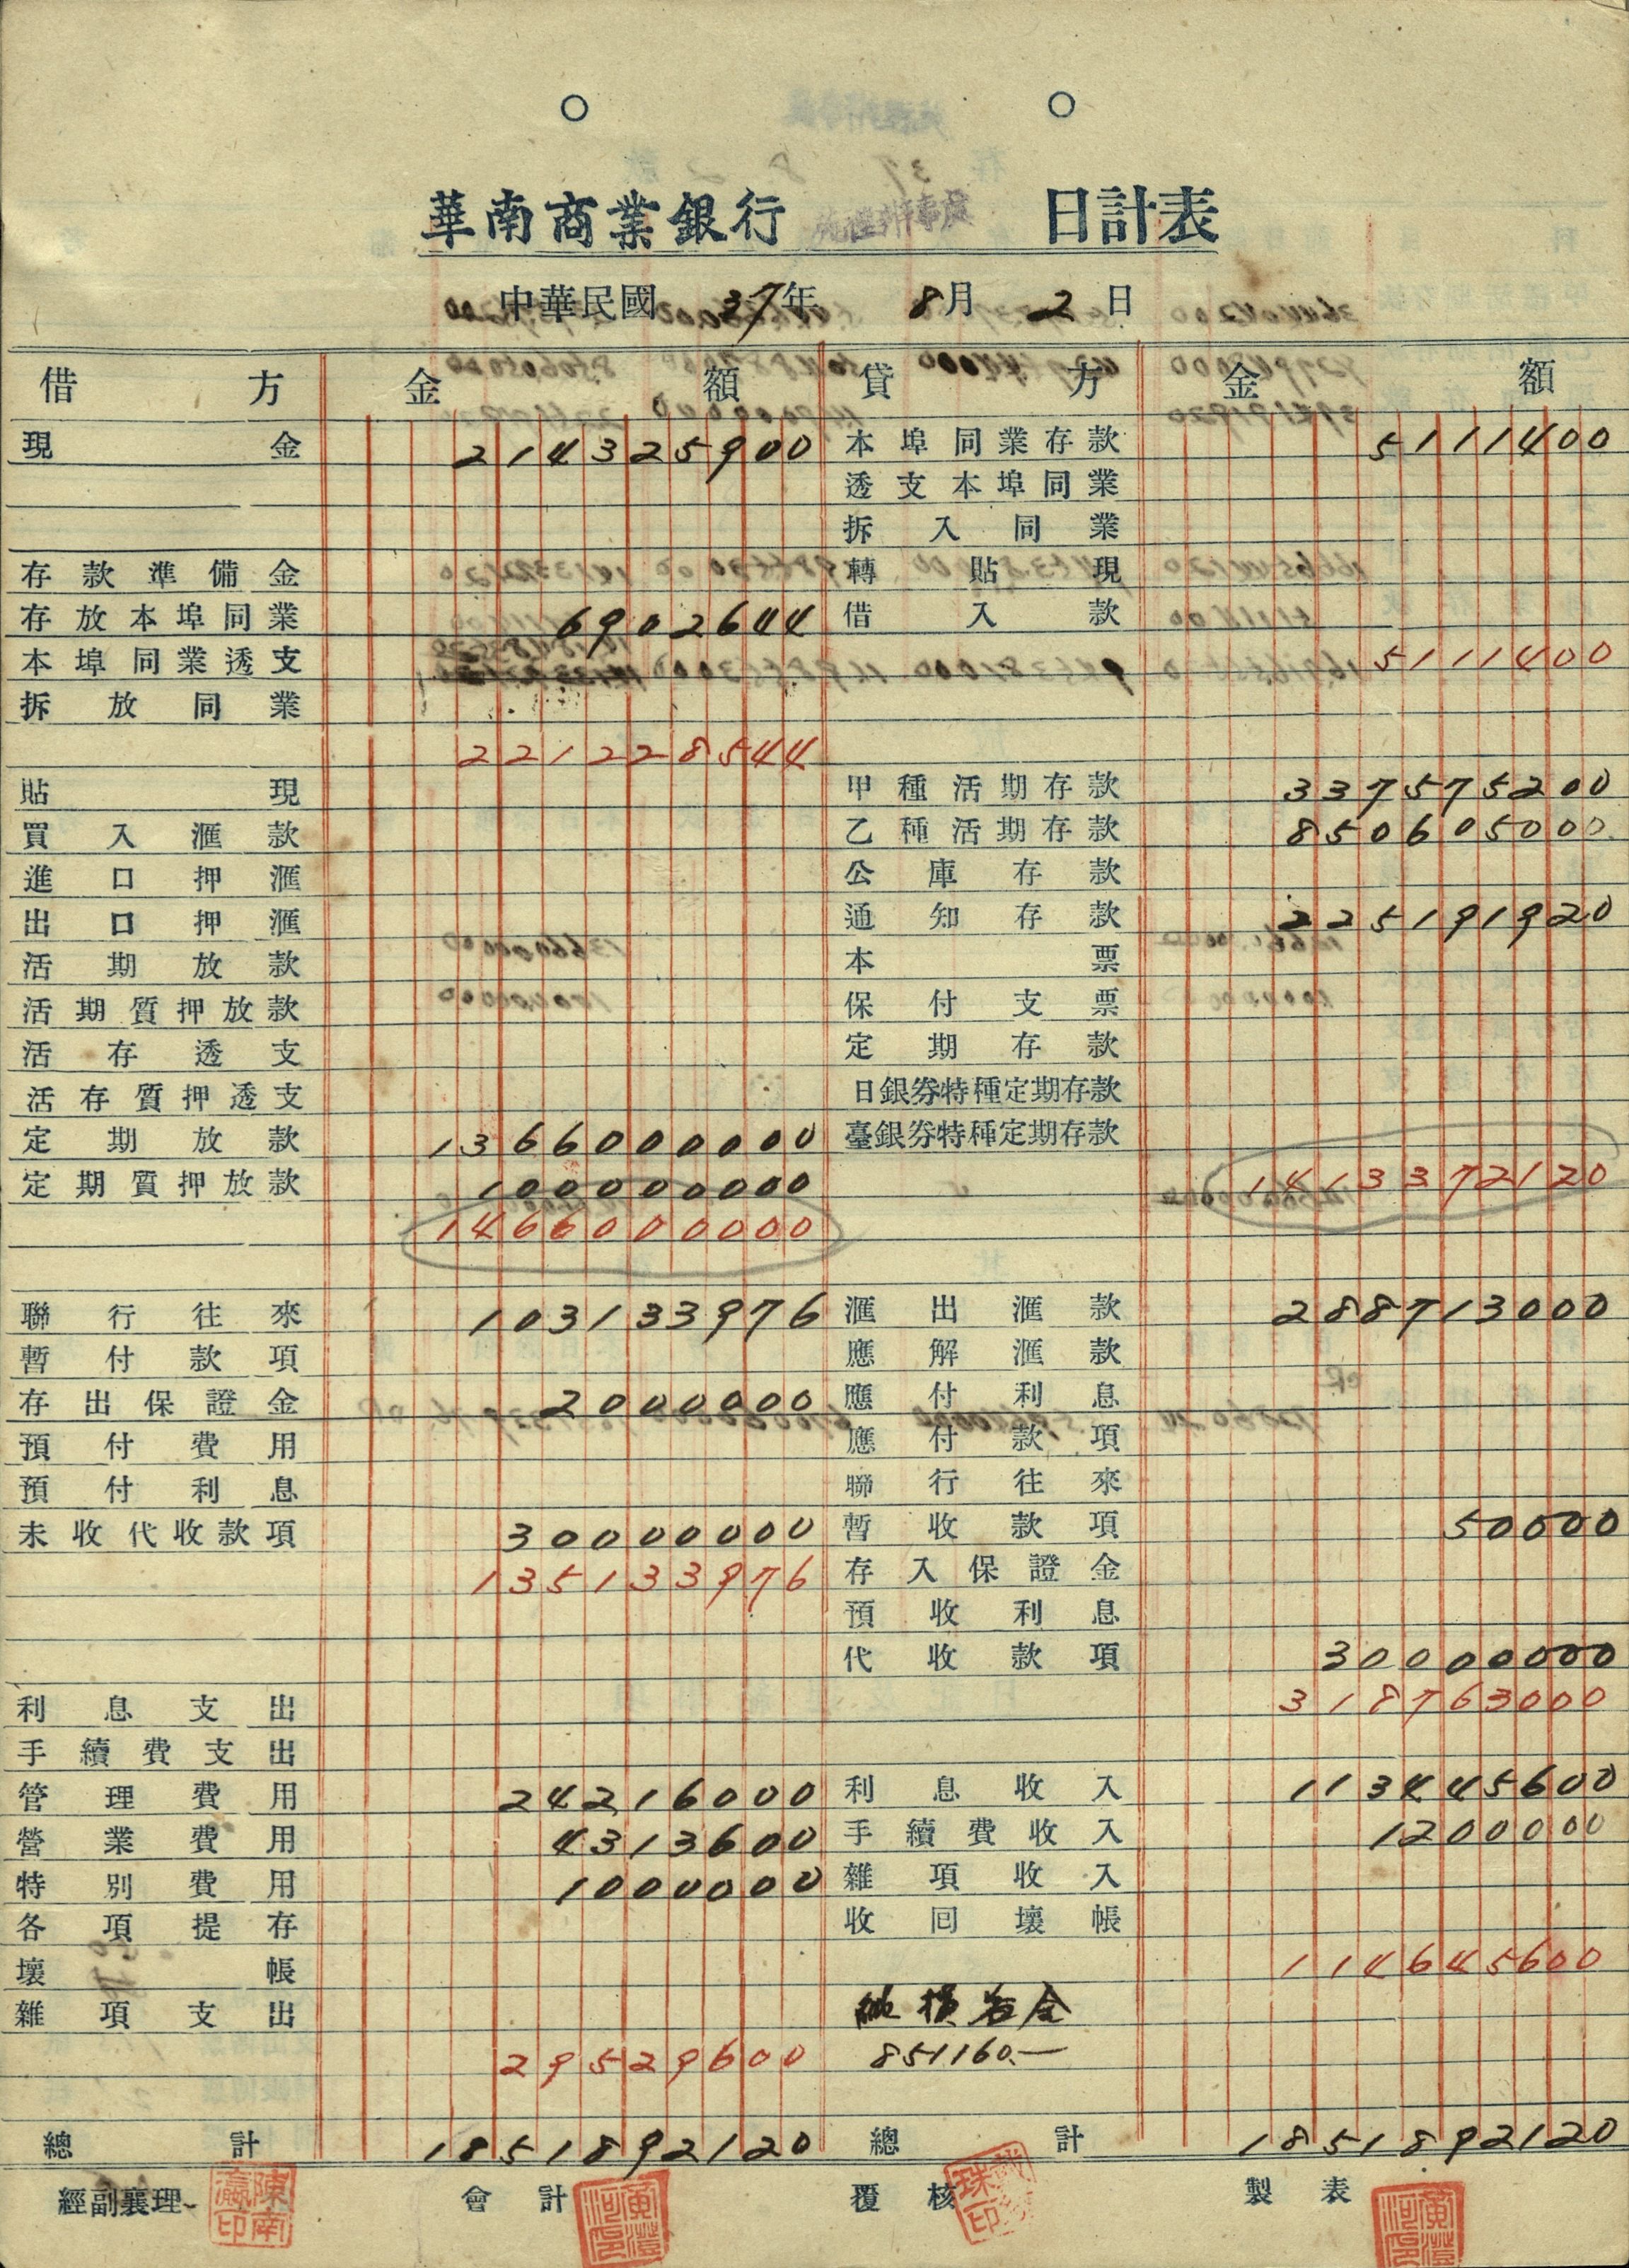 華南商業銀行 日計表
中華民國 37年 8月 2日
借方 金額 貸方 金額
現金 214325900 本埠同業存款 5111400
透支本埠同業
拆入同業
存款準備金 轉貼現
存放本埠同業 6902644 借入款
本埠同業透支 5111400
拆放同業
221228544
貼現 甲種活期存款 337575200
買入滙款 乙種活期存款 850605000
進口押滙 公庫存款
出口押滙 通知存款 225191920
活期放款 本票
活期質押放款 保付支票
活存透支 定期存款
活存質押透支 日銀券特種定期存款
定期放款 1366000000 臺銀券特種定期存款
定期質押放款 100000000 1413372120
1466000000
聯行往來 103133976 滙出滙款 288713000
暫付款項 應解滙款
存出保證金 2000000 應付利息
預付費用 應付款項
預付利息 聯行往來
未收代收款項 30000000 暫收款項 50000
135133976 存入保證金
預收利息
代收款項 30000000
利息支出 318763000
手續費支出
管理費用 24216000 利息收入 113445600
營業費用 4313600 手續費收入 1200000
特別費用 1000000 雜項收入
各項提存 收回壞帳
壞帳 114645600
雜項支出
29529600 851160.—
總計 1851892120 總計 1851892120
經副襄理 會計 覆核 製表